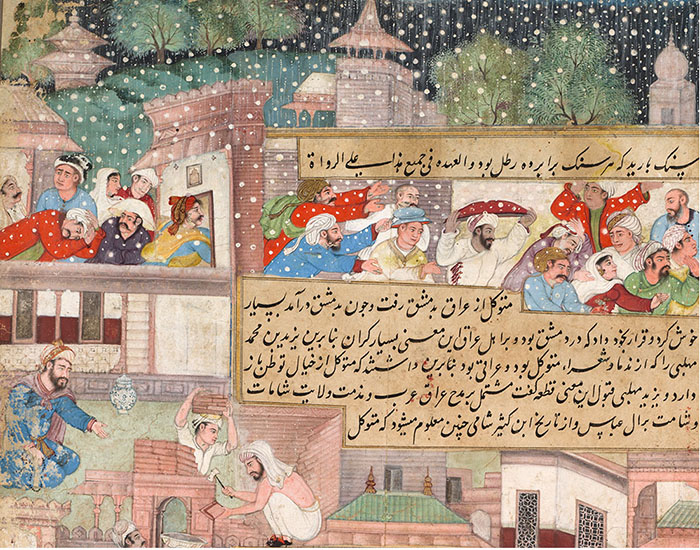 سنک بارید که هر سنک برابر ده رطل بود والعهده فی جمیع هذا علی الرواة
متوکل از عراق بدمشق رفت و چون بدمشق درآمد بسیار
خوش کرد و قرار بخود داد که در دمشق بود و بر اهل عراق این معنی بسیار کران بنابرین یزید بن محمد
مهلبی را که از ندما و شعراء متوکل بود و عراقی بود بنابرین داشتند که متوکل از خیال توطن باز
دارد و یزید مهلبی قبول این معنی قطعه گفت مشتمل بر مدح عراق عرب و مذمت ولایت شامات
و شامت بر آل عباس و از تاریخ ابن کثیر شامی چنین معلوم میشود که متوکل